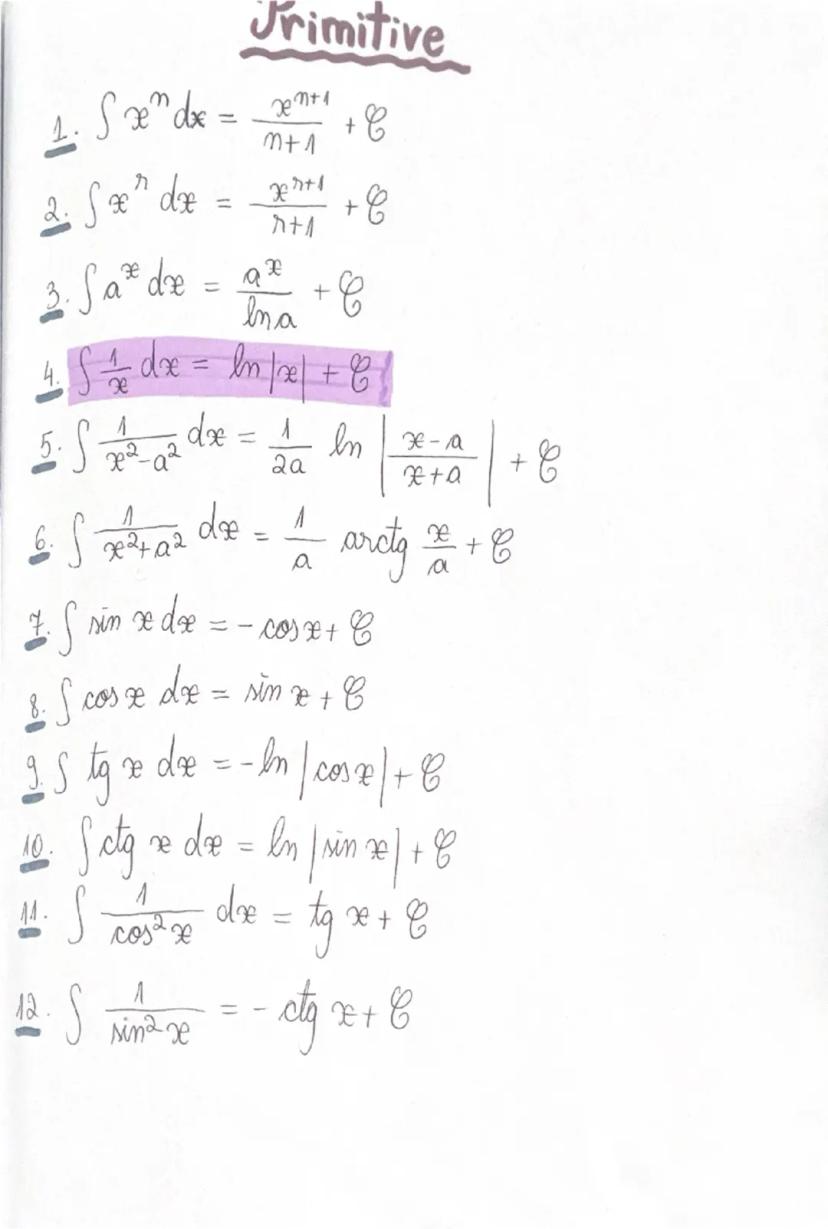 Primitive
1. ∫ xⁿ dx = xⁿ⁺¹/(n+1) + C
2. ∫ xʳ dx = xʳ⁺¹/(r+1) + C
3. ∫ aˣ dx = aˣ/ln a + C
4. ∫ 1/x dx = ln |x| + C
5. ∫ 1/(x²-a²) dx = 1/(2a) ln |(x-a)/(x+a)| + C
6. ∫ 1/(x²+a²) dx = 1/a arctg x/a + C
7. ∫ sin x dx = - cos x + C
8. ∫ cos x dx = sin x + C
9. ∫ tg x dx = - ln |cos x| + C
10. ∫ ctg x dx = ln |sin x| + C
11. ∫ 1/cos² x dx = tg x + C
12. ∫ 1/sin² x = - ctg x + C